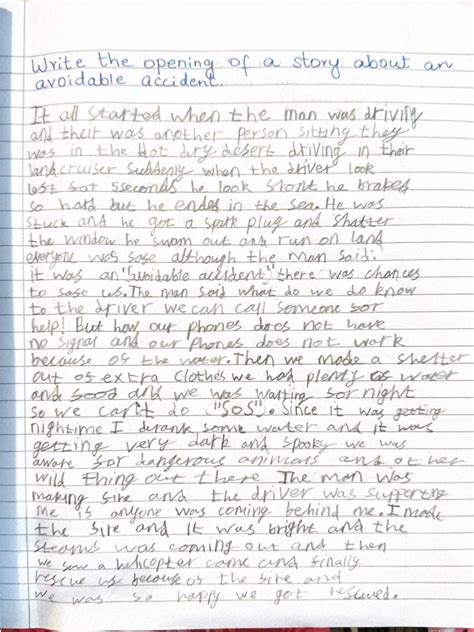 Write the opening of a story about an
avoidable accident.
It all started when the man was driving
and their was another person sitting they
was in the Hot dry desert driving in their
landcruiser suddenly when the driver look
left for 5seconds he look front he brakes
so hard but he ended in the sea. He was
stuck and he got a spark plug and shatter
the window he swam out and run on land
everyone was safe although the man said:
it was an "avoidable accident" there was chances
to safe us. The man said what do we do know
to the driver we can call someone for
help! But how our phones does not have
no signal and our phones does not work
because of the water. Then we made a shelter
out of extra clothes we had plenty of water
and food and we was waiting for night
so we can't do "SOS". Since it was getting
nightime I drank some water and it was
getting very dark and spooky we was
aware for dangerous animals and other
wild thing out there The man was
making fire and the driver was supporting
me is anyone was coming behind me. I made
the fire and It was bright and the
steams was coming out and then
we saw a helicopter came and finally
rescue us because of the fire and
we was so happy we got rescued.